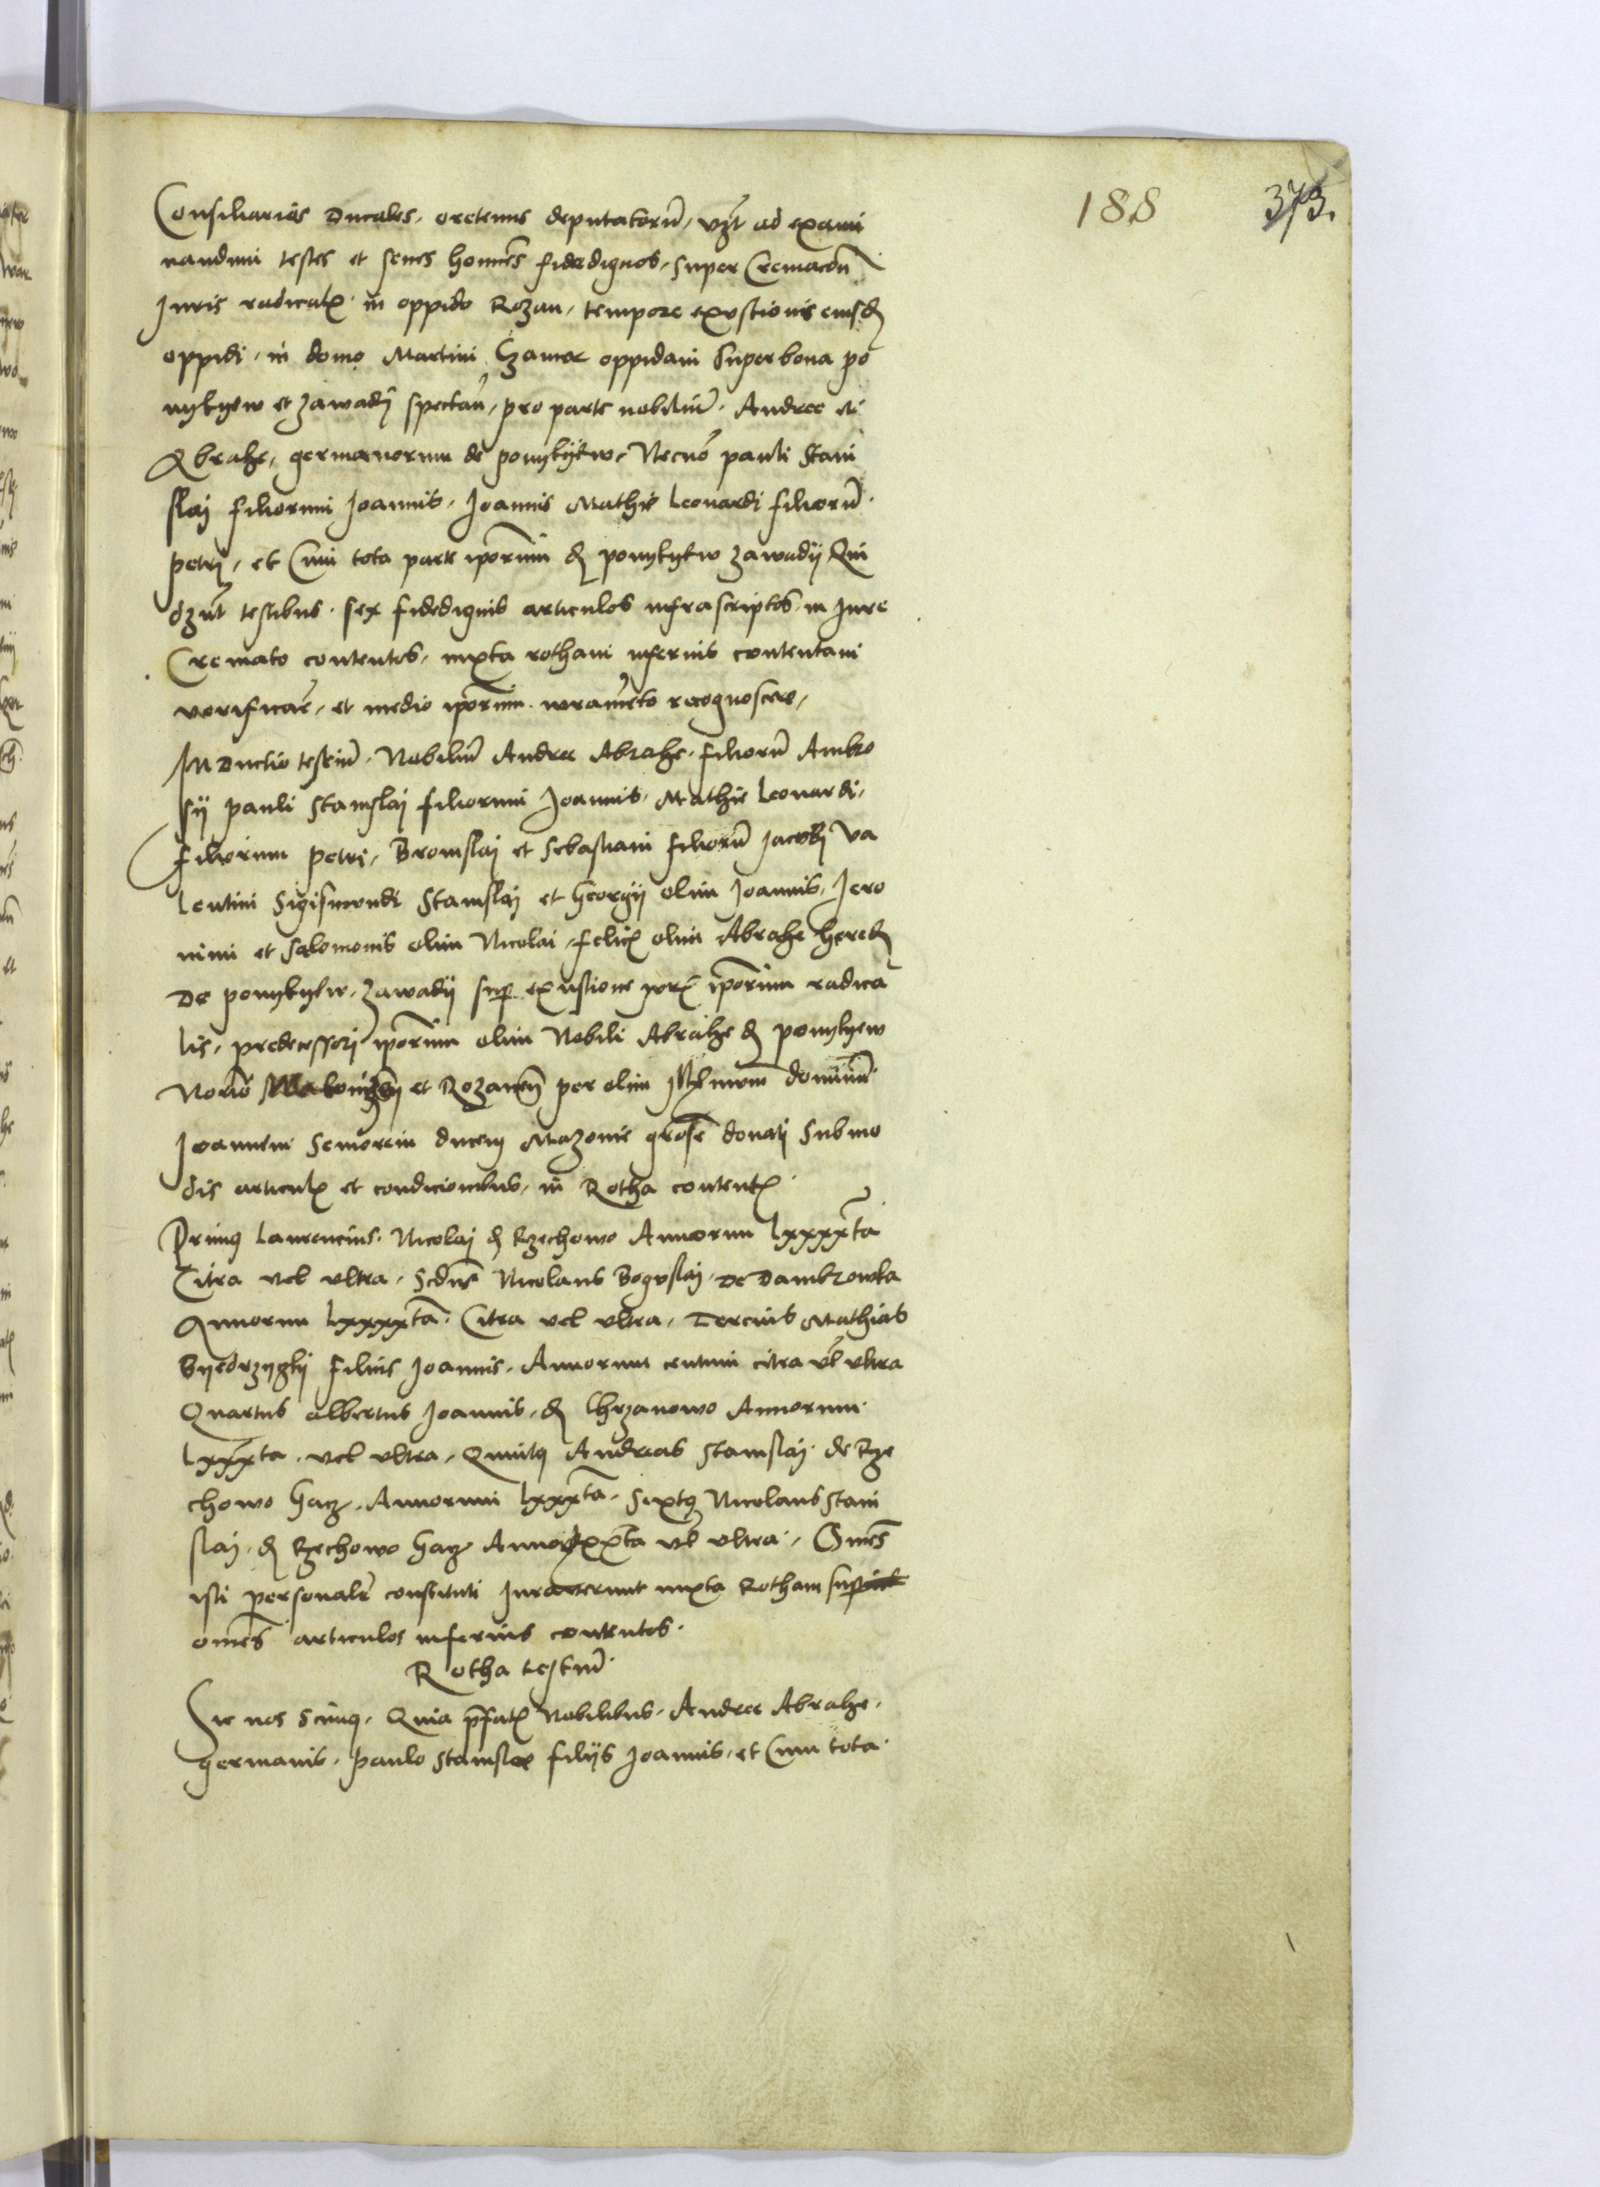 188 373.
Consiliarios Ducales, oretenus deputatorū, vzt ad exami
nandum testes et senes homines fidedignos, super Cremacōn
Juris radicalis in oppido Rozan, tempore exustionis eiusd
oppidi, in domo Martini Czamer oppidani super bona po
nykyew et zawady spectan, pro parte nobiliū Andree et
Abrahe, germanorum de ponykyew, Necnō pauli Stani
slaj filiorum Joannis, Joannis Mathie Leonardi filiorū
petri, et Cum tota parte ipōrum d ponykyew zawadij Qui
dzūt testibus sex fidedignis articulos infrascriptos in Jure
Cremato contentos, iuxta rotham inferius contentam
verificāē, et medio ipōrum iuramēto recognoscere,
Inductio testiū Nobiliū Andree Abrahe filiorū Ambro
sij pauli Stanislaj filiorum Joannis, Mathie Leonardi,
filiorum petri, Bronislaj et Sebastiani filiorū Jacobi Va
lentini Sigismundi Stanislaj et Georgij olim Joannis, Jero
nimi et Salomonis olim Nicolai, felicis olim Abrahe hered
De ponykyew, zawadij sup exustione Juris ipōrum radica
lis, predecessori ipōrum olim Nobili Abrahe d ponykyew
et Rozanen per olim Illmum dominum
Joannem Seniorem ducem Mazovie grōse donatj Sub mo
dis articulis et condicionibus, in Rotha contentis
Primus Laurencius Nicolaj d Rzechowo Annorum Lxxxxta
Citra vel ultra, Scdus Nicolaus Boguslaj de Dambrowka
Annorum Lxxxxta Citra vel ultra, Tercius Mathias
Byedrzyzkij filius Joannis, Annorum centum citra vl ultra
Quartus albertus Joannis, d Chrzanowo Annorum
Lxxxta vel ultra, Quintus Andreas Stanislaj de Rze
chowo Gacz, Annorum Lxxxta, Sextus Nicolaus Stani
slaj d Rzechowo Gacz Anno Lxxta vl ultra, Omēs
isti personalē constituti Juraverunt iuxta Rotham
omēs articulos inferius contentos
Rotha testiū
Sic nos Scimus, Quia prefatis Nobilibus Andree Abrahe,
germanis, paulo Stanislao filijs Joannis, et Cum tota